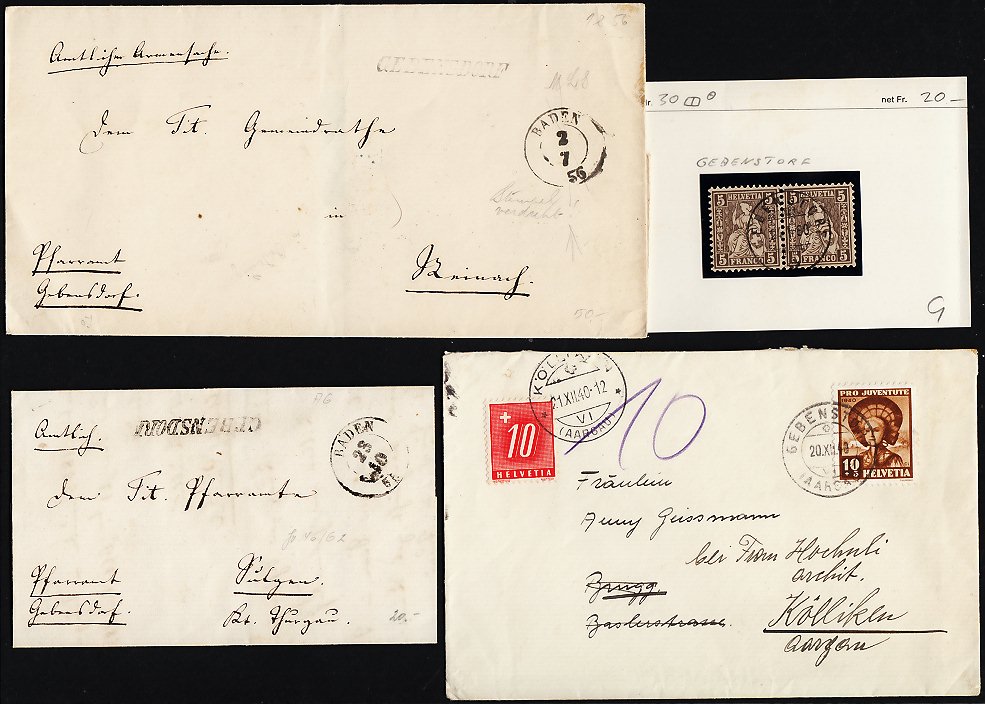 Amtlicher Armensache.
18 56
GEBENSDORF
Dem Tit. Gemeindrathe
BADEN
2
7
56
Stempel
verdreht.
in
Pfarramt
Gebensdorf.
Reinach.
50.-
Nr. 30 net Fr. 20.-
GEBENSTORF
5 HELVETIA 5
5 FRANCO 5
5 HELVETIA 5
5 FRANCO 5
9
AG
Amtlich.
BADEN
Dem Tit. Pfarramte
Pfarramt
Gebensdorf.
Sulgen.
Kt. Thurgau.
20.-
+
10
HELVETIA
21.XII.40-12
VI
(AARGAU)
10
GEBENST
20.XII.40
(AARGAU)
PRO JUVENTUTE
1940
10+5 HELVETIA
Fräulein
Anny Geissmann
bei Frau Hochuli
archit.
Brugg.
Baslerstrasse.
Kölliken
Aargau